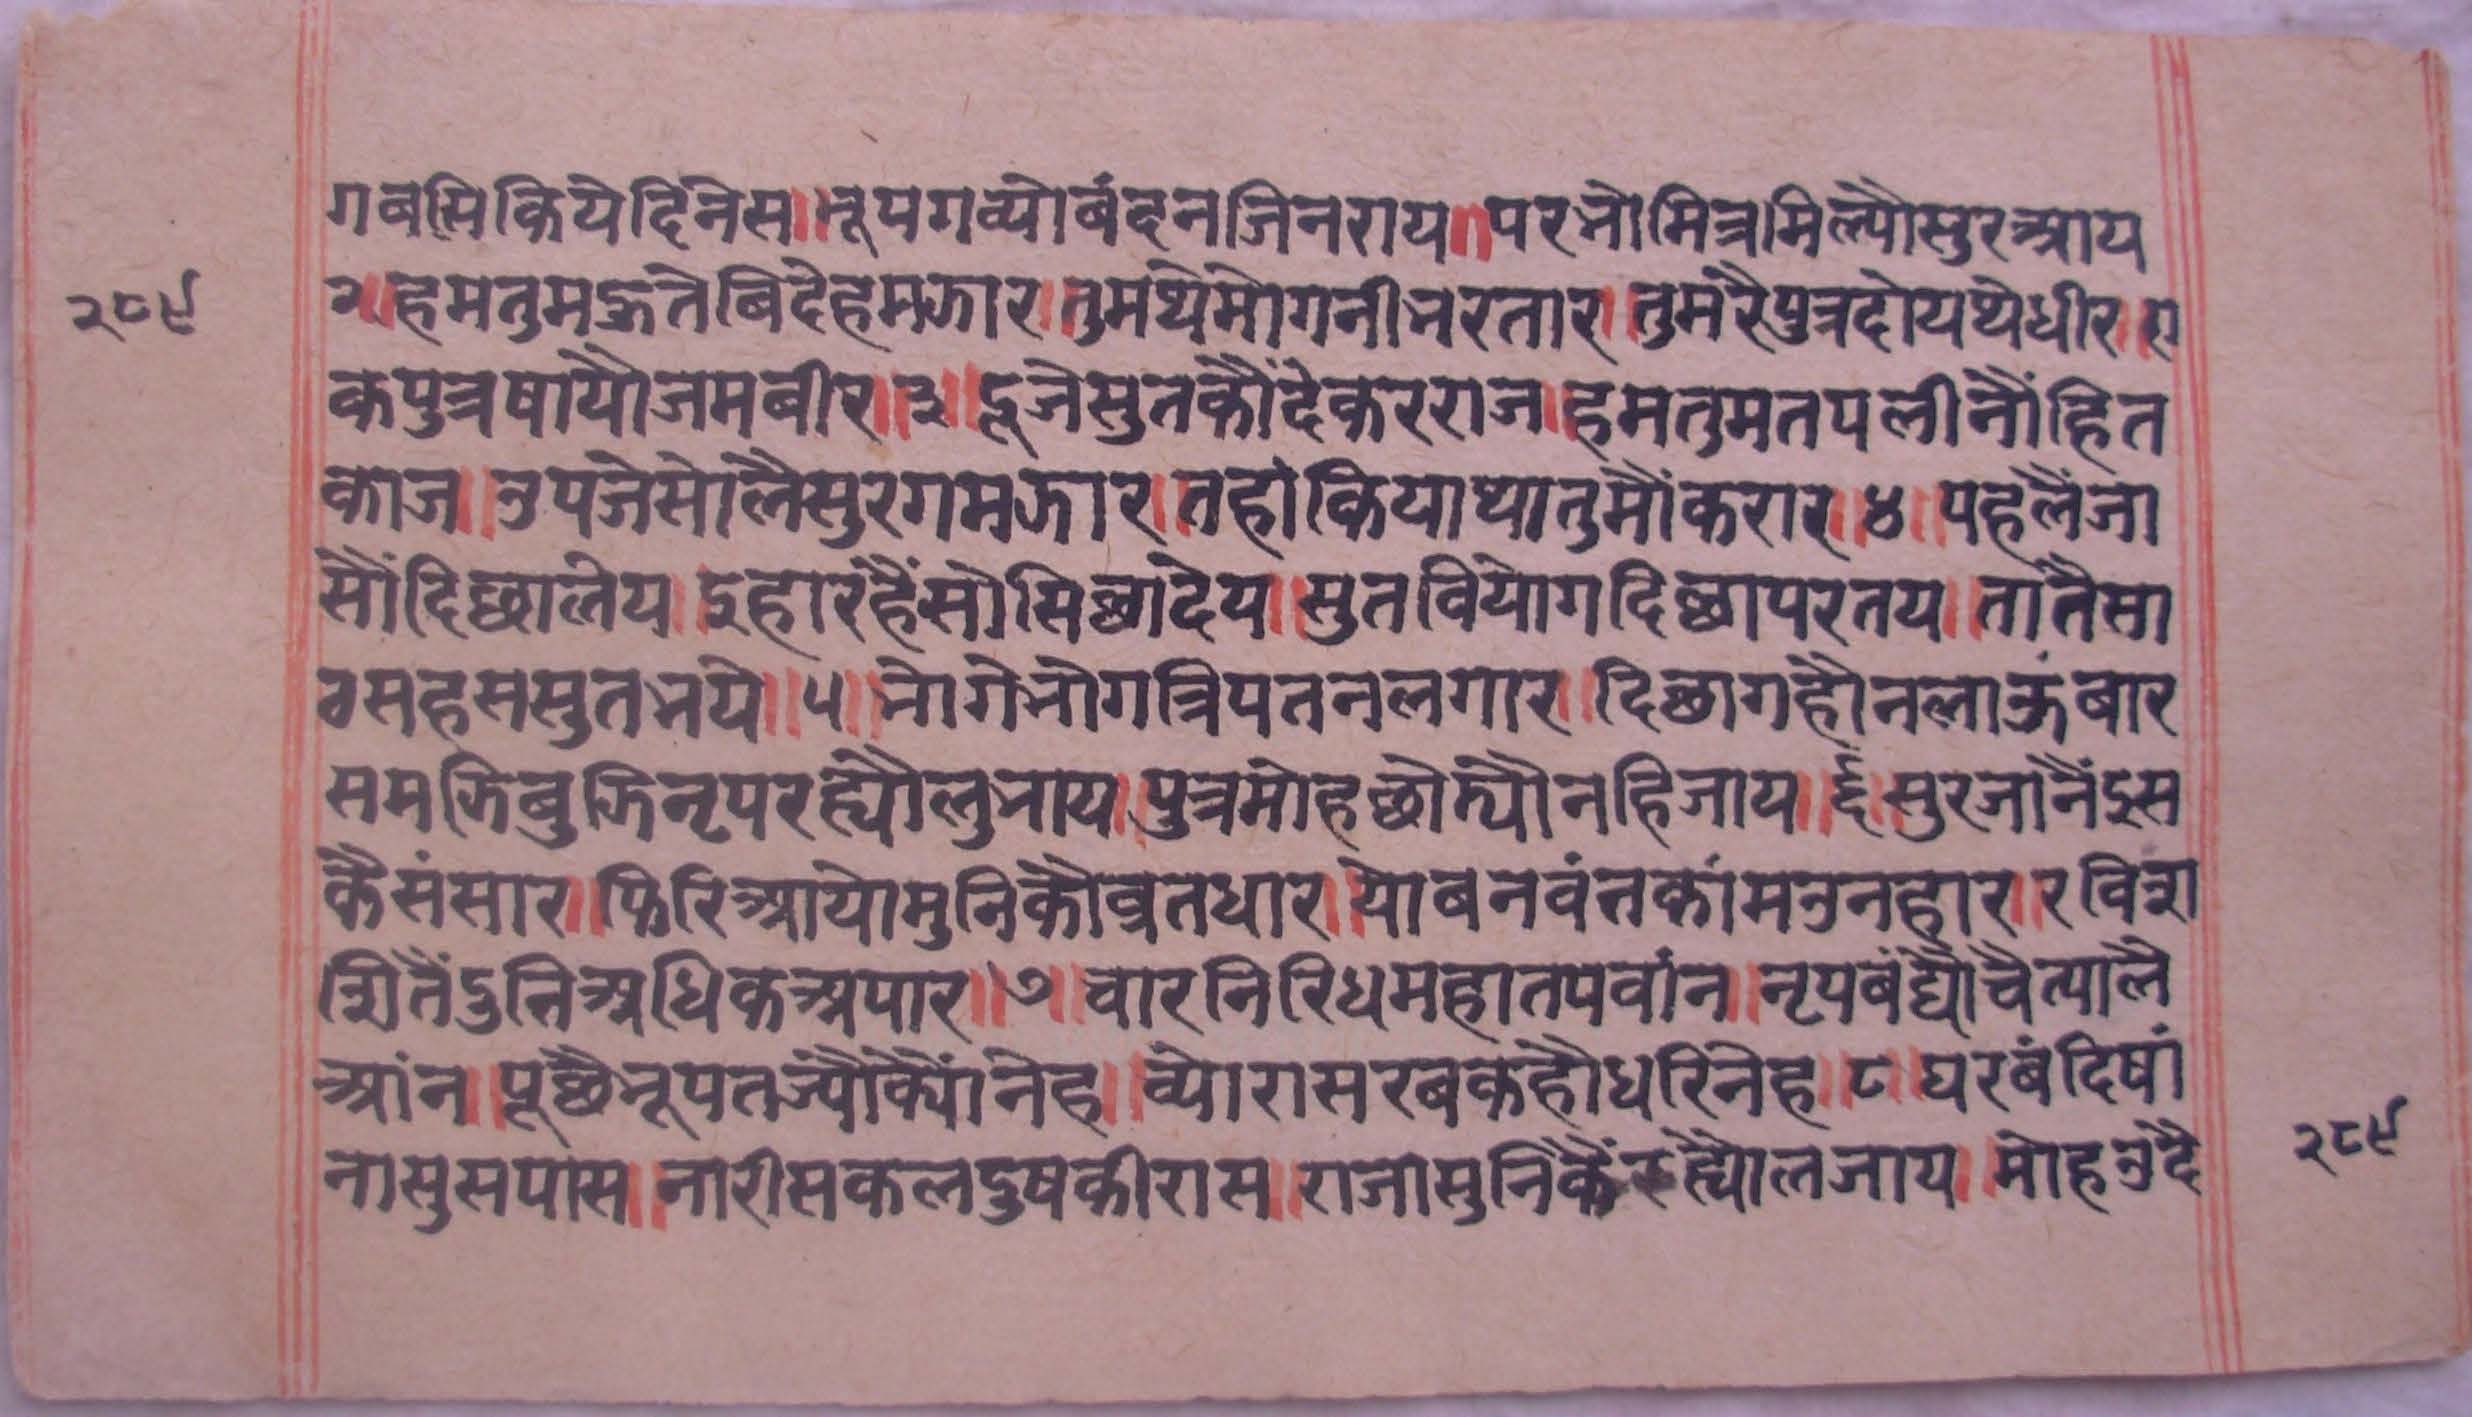 गबसि किये दिनेस॥ भूप गव्यो बंदन जिनराय॥ पर भो मित्र मिल्यौ सुर आय
२॥ हम तुम ऊते बिदेह मझार॥ तुम थे मोगनी भरतार॥ तुमरै पुत्र दोय थे धीर॥ ए
क पुत्र षायौ जम बीर॥३॥ दूजे सुत कौं दे कर राज॥ हम तुम तप लीनौं हित
काज॥ उपजे सोलै सुरग मझार॥ तहां किया था तुमौं करार॥४॥ पहलैं जा
सौं दिछा लेय॥ इहा रहैं सौ सिछा देय॥ सुत वियोग दिछा पर तय॥ तातै सा
ठ सहस सुत भये॥५॥ भोगे भोग त्रिपत न लगार॥ दिछा गहौ न लाऊं बार
समझि बुझि नृप रह्यौ लुभाय॥ पुत्र मोह छोम्यौ नहि जाय॥६॥ सुर जानैं इस
कै संसार॥ फिरि आयो मुनि कौ व्रत धार॥ योबनवंत कांम उनहार॥ रवि शा
शि तैं दुति अधिक अपार॥७॥ चारनि रिध महा तपवांन॥ नृप बंद्यौ चैत्यालै
आंन॥ पूछै भूप तज्यौ क्यौं नेह॥ व्योरा सरब कहौ धरि नेह॥८॥ घर बंदिषां
ना सुस पास॥ नारी सकल दुष की रास॥ राजा सुनि कैं रह्यौ लजाय॥ मोह उदै
२८९
२८९